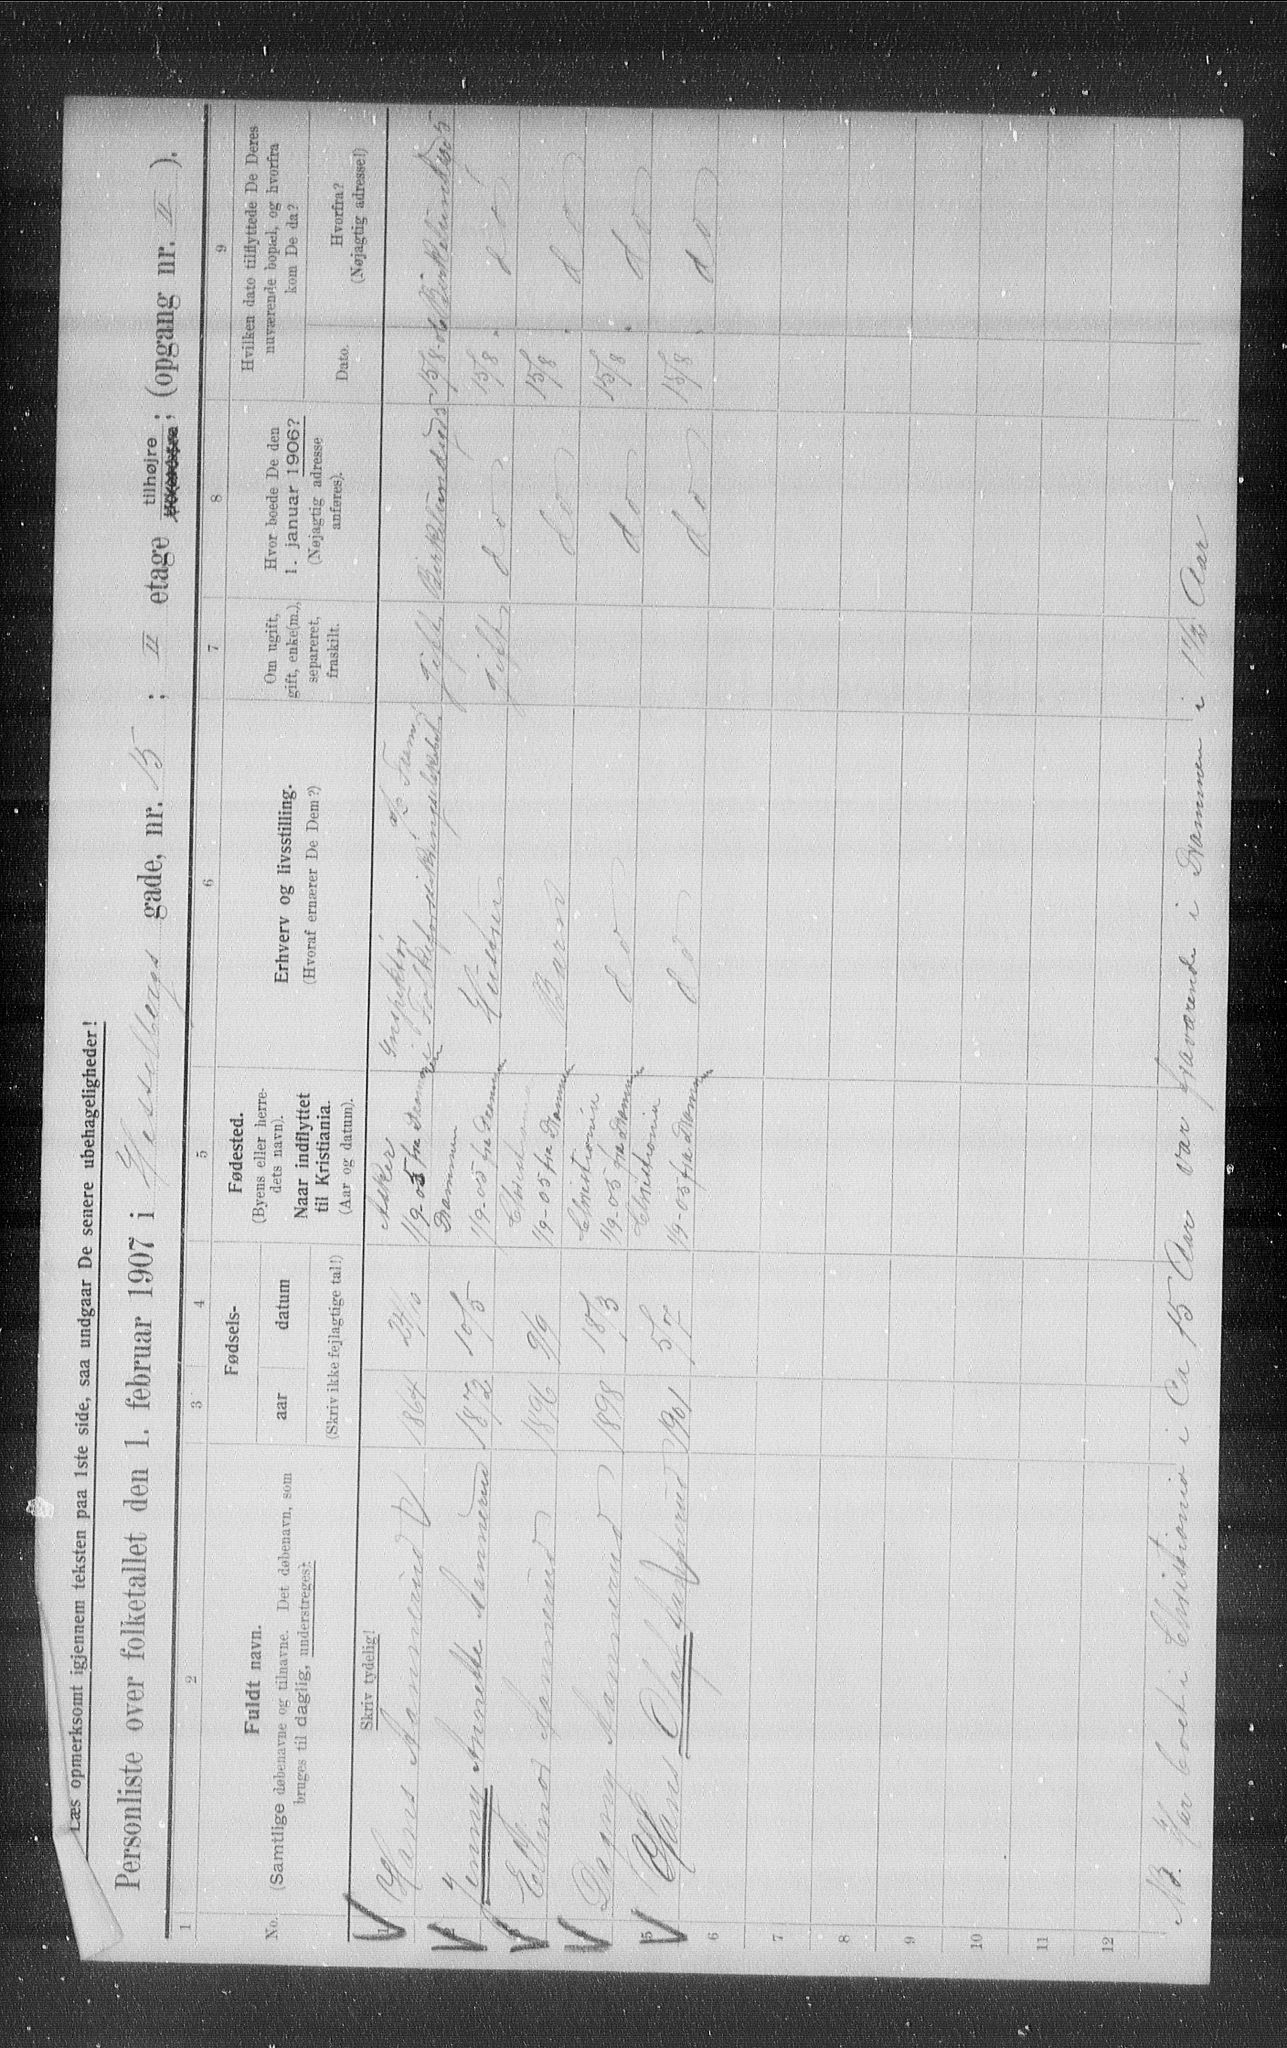 Læs opmerksomt igjennem teksten paa 1ste side, saa undgaar De senere ubehageligheder!
Personliste over folketallet den 1. februar 1907 i Hesselbergs gade, nr. 15 ; II etage tilhøjre ; (opgang nr. II ).
1 2 3 4 5 6 7 8 9
No.
Fuldt navn.
(Samtlige døbenavne og tilnavne. Det døbenavn, som
bruges til daglig, understreges).
Fødsels-
aar datum
(Skriv ikke fejlagtige tal!)
Fødested.
(Byens eller herre-
dets navn).
Naar indflyttet
til Kristiania.
(Aar og datum).
Erhverv og livsstilling.
(Hvoraf ernærer De Dem?)
Om ugift,
gift, enke(m.),
separeret,
fraskilt.
Hvor boede De den
1. januar 1906?
(Nøjagtig adresse
anføres).
Hvilken dato tilflyttede De Deres
nuværende bopæl, og hvorfra
kom De da?
Dato.
Hvorfra?
(Nøjagtig adresse!)
Skriv tydelig!
Asker Inspektør
1 Hans Aamerud 1864 1/9-05 fra Drammen Folkeforsikringselskabet gift 15/8
Drammen
2 Jenny Annette Aamerud 1872 10/5 1/9-05 fra Drammen Hustru gift do 15/8 " do
Christiania
3 Ellinor Aamerud 1896 9/9 1/9-05 fra Drammen Barn do 15/8 " do
Christiania
4 Dagny Aamerud 1898 18/3 1/9-05 fra Drammen do do 15/8 " do
Christiania
5 Hans Olaf Aamerud 1901 5/7 1/9-05 fra Drammen do do 15/8 " do
6
7
8
9
10
11
12
NB. Har boet i Christiania i Ca 15 Aar var fraværende i Drammen i 1 1/2 Aar